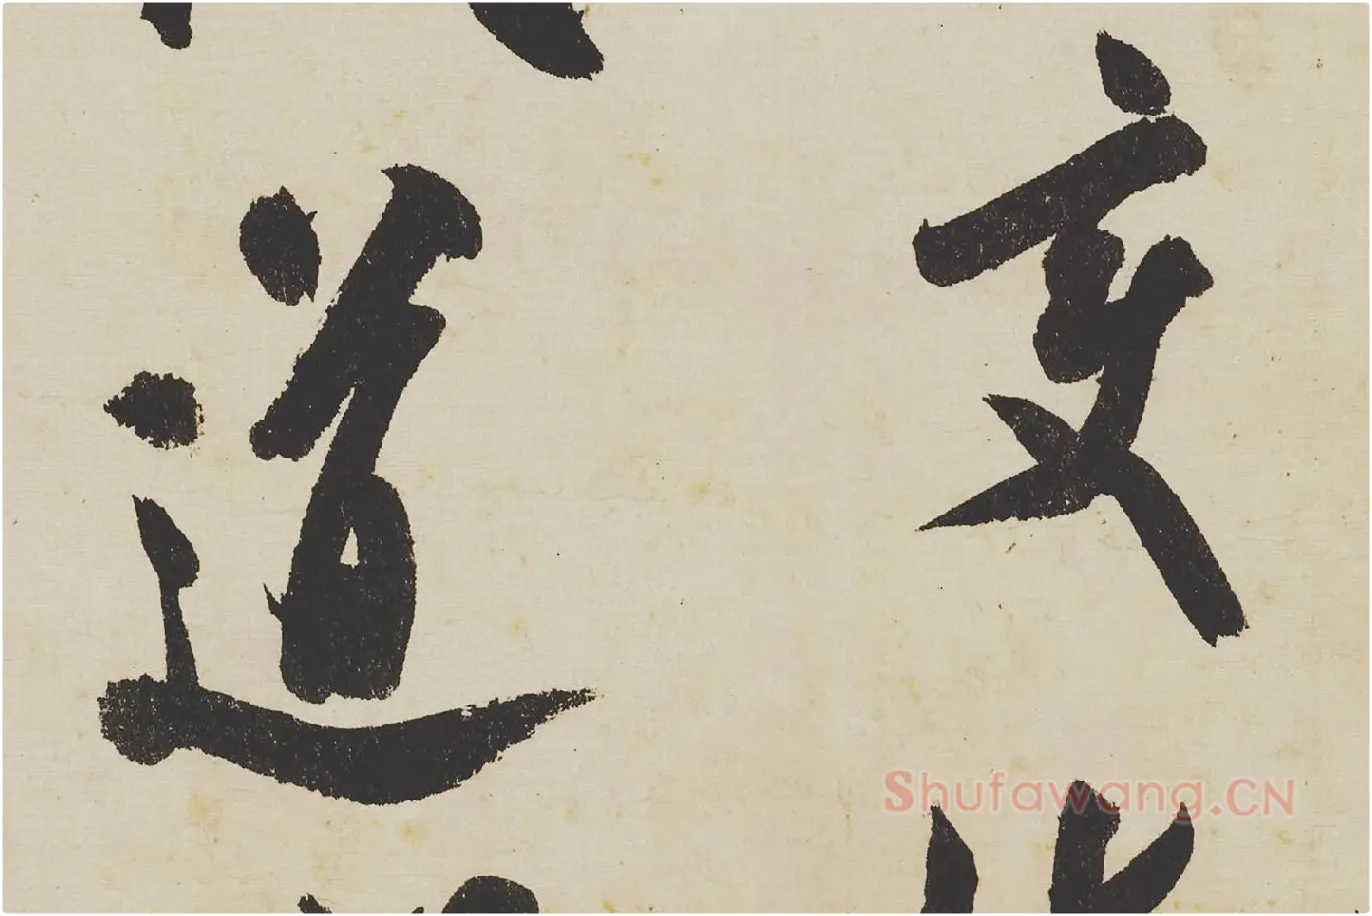 交
道
Shufawang.CN